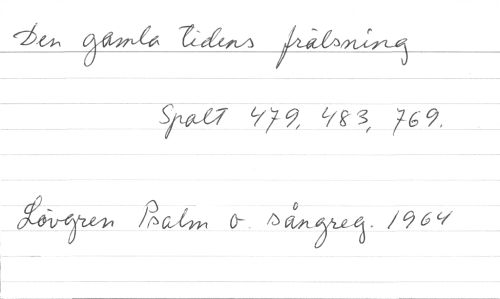 Den gamla tidens frälsning
Spalt 479, 483, 769.
Lövgren Psalm o. sångreg. 1964